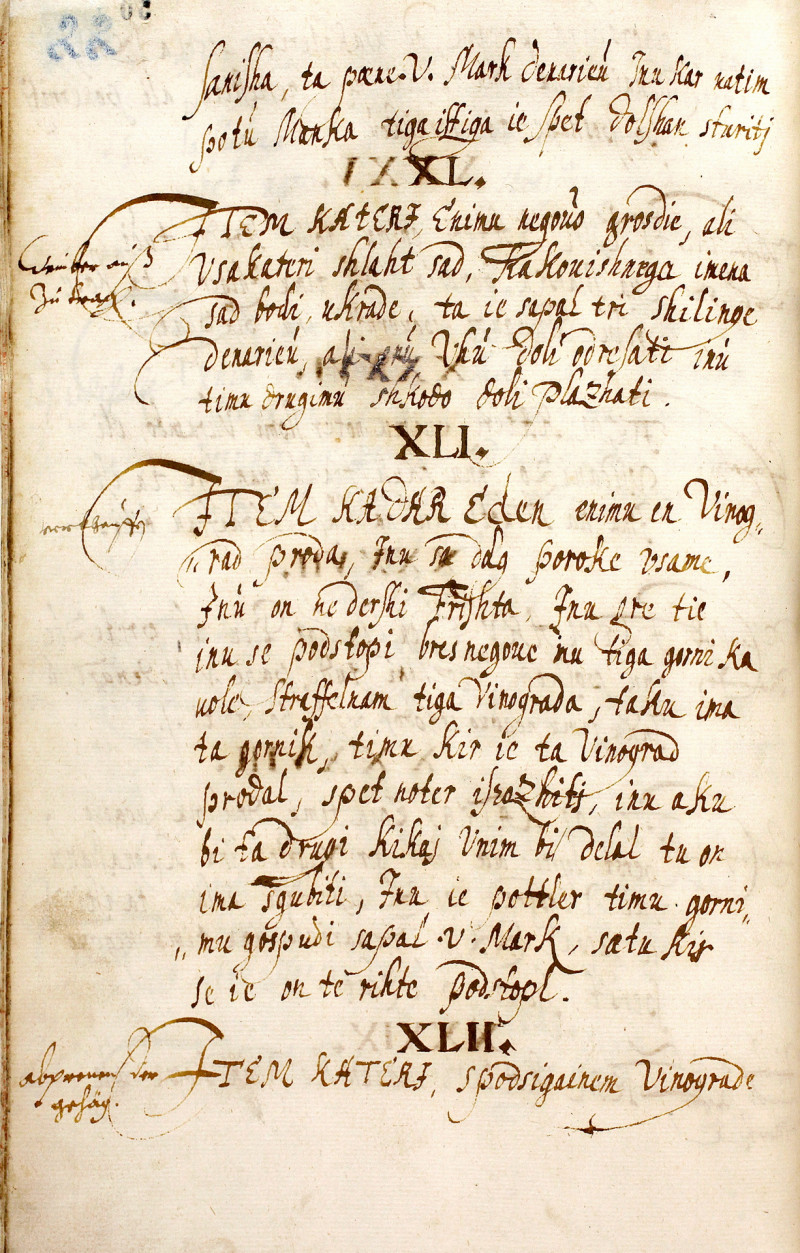 22
sanisha, ta pæne. V. Mark denarieú Inu kar natim
potú Manka tiga istiga ie spet dolshan sturitj
XL.
ITEM KATERI, Enimu negouo grosdie, ali
Vsakateri shlaht sad, Kakouishnega imena
sad bodi, ukrade, ta ie sapal tri shilinge
denarieú, ali enú Vhú doli odresati inú
timu drugimú shkodo doli plazhati.
XLI.
ITEM KADAR Eden enimu en Vinog„
„rad proda, Inu sa dág poroke vsame,
Inú on ne dershi Frishta, Inu gre tie
inu se podstopi bres negoue inu tiga gorni ka
uole, Straffelnam tiga Vinograda, taku ima
ta gornik, timu kir ie ta Vinograd
prodal, spet noter israzhiti, inu aku
bi ta drugi kikaj Vnim bil delal tu on
ima sgubiti, Inu ie pottler timu gorni„
„mu gospudi sapal .v. Mark, sa tu kir
se ie on te rihte podstopl.
abprenen der
gehäg.
XLII.
ITEM KATERI, spodsigainem Vinograde